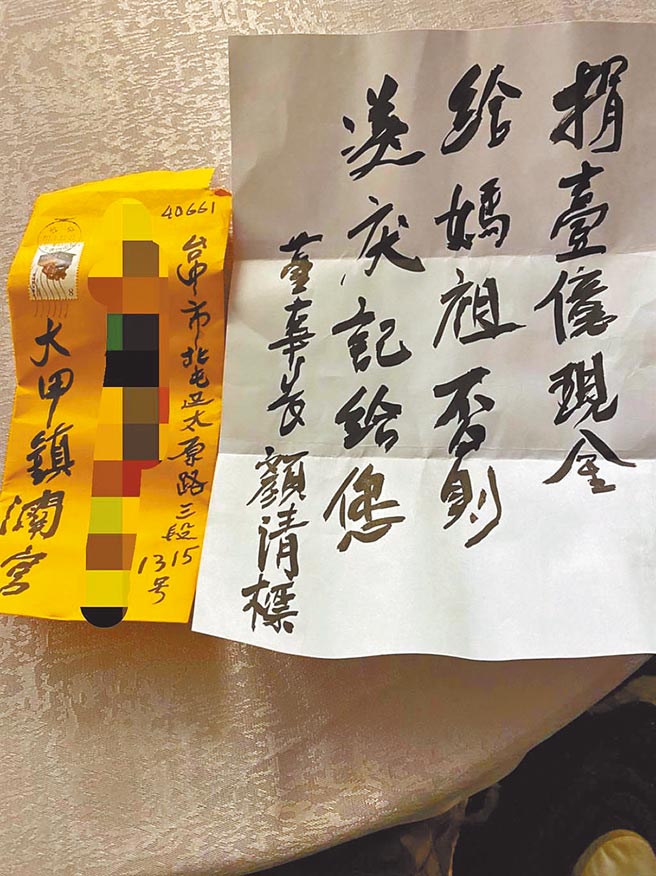 捐壹億現金
給媽祖否則
送灾記給您
董事長顏清標
40661
台中市北屯区太原路三段
1315号
大甲鎮瀾宮
8